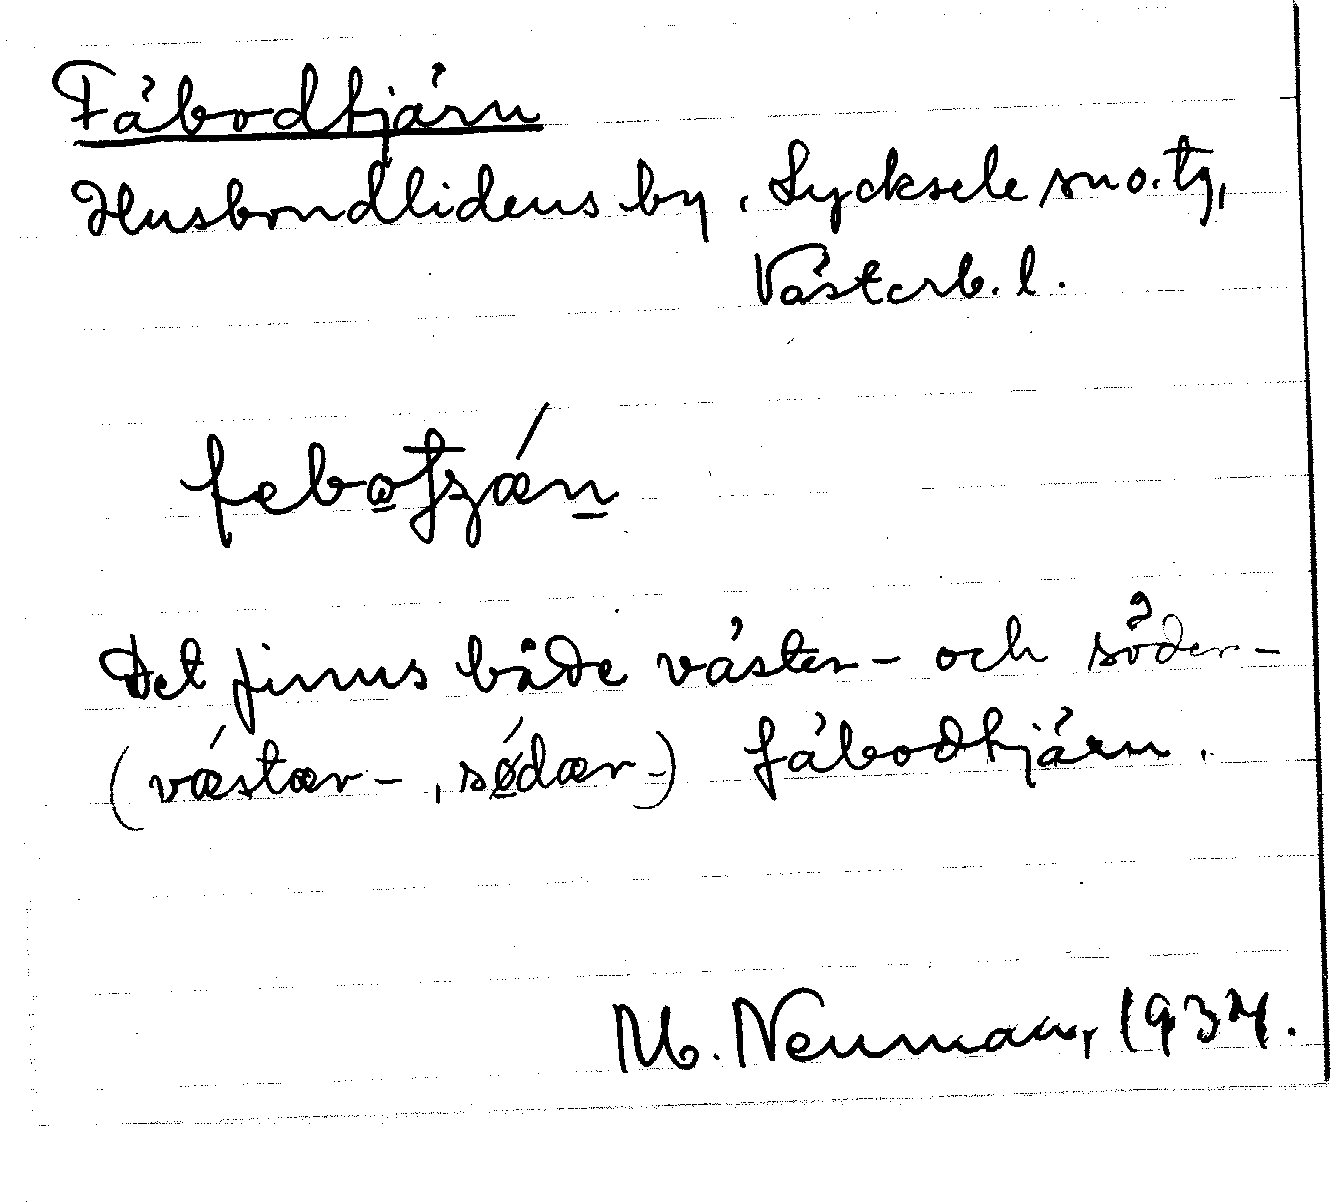 Fäbodtjärn
Husbondlidens by, Lycksele sn o. tg,
Västerb. l.
febotʃǽn
Det finns både väster- och söder-
(vǽstær-, sǿdær-) fäbodtjärn.
M. Neuman, 1934.